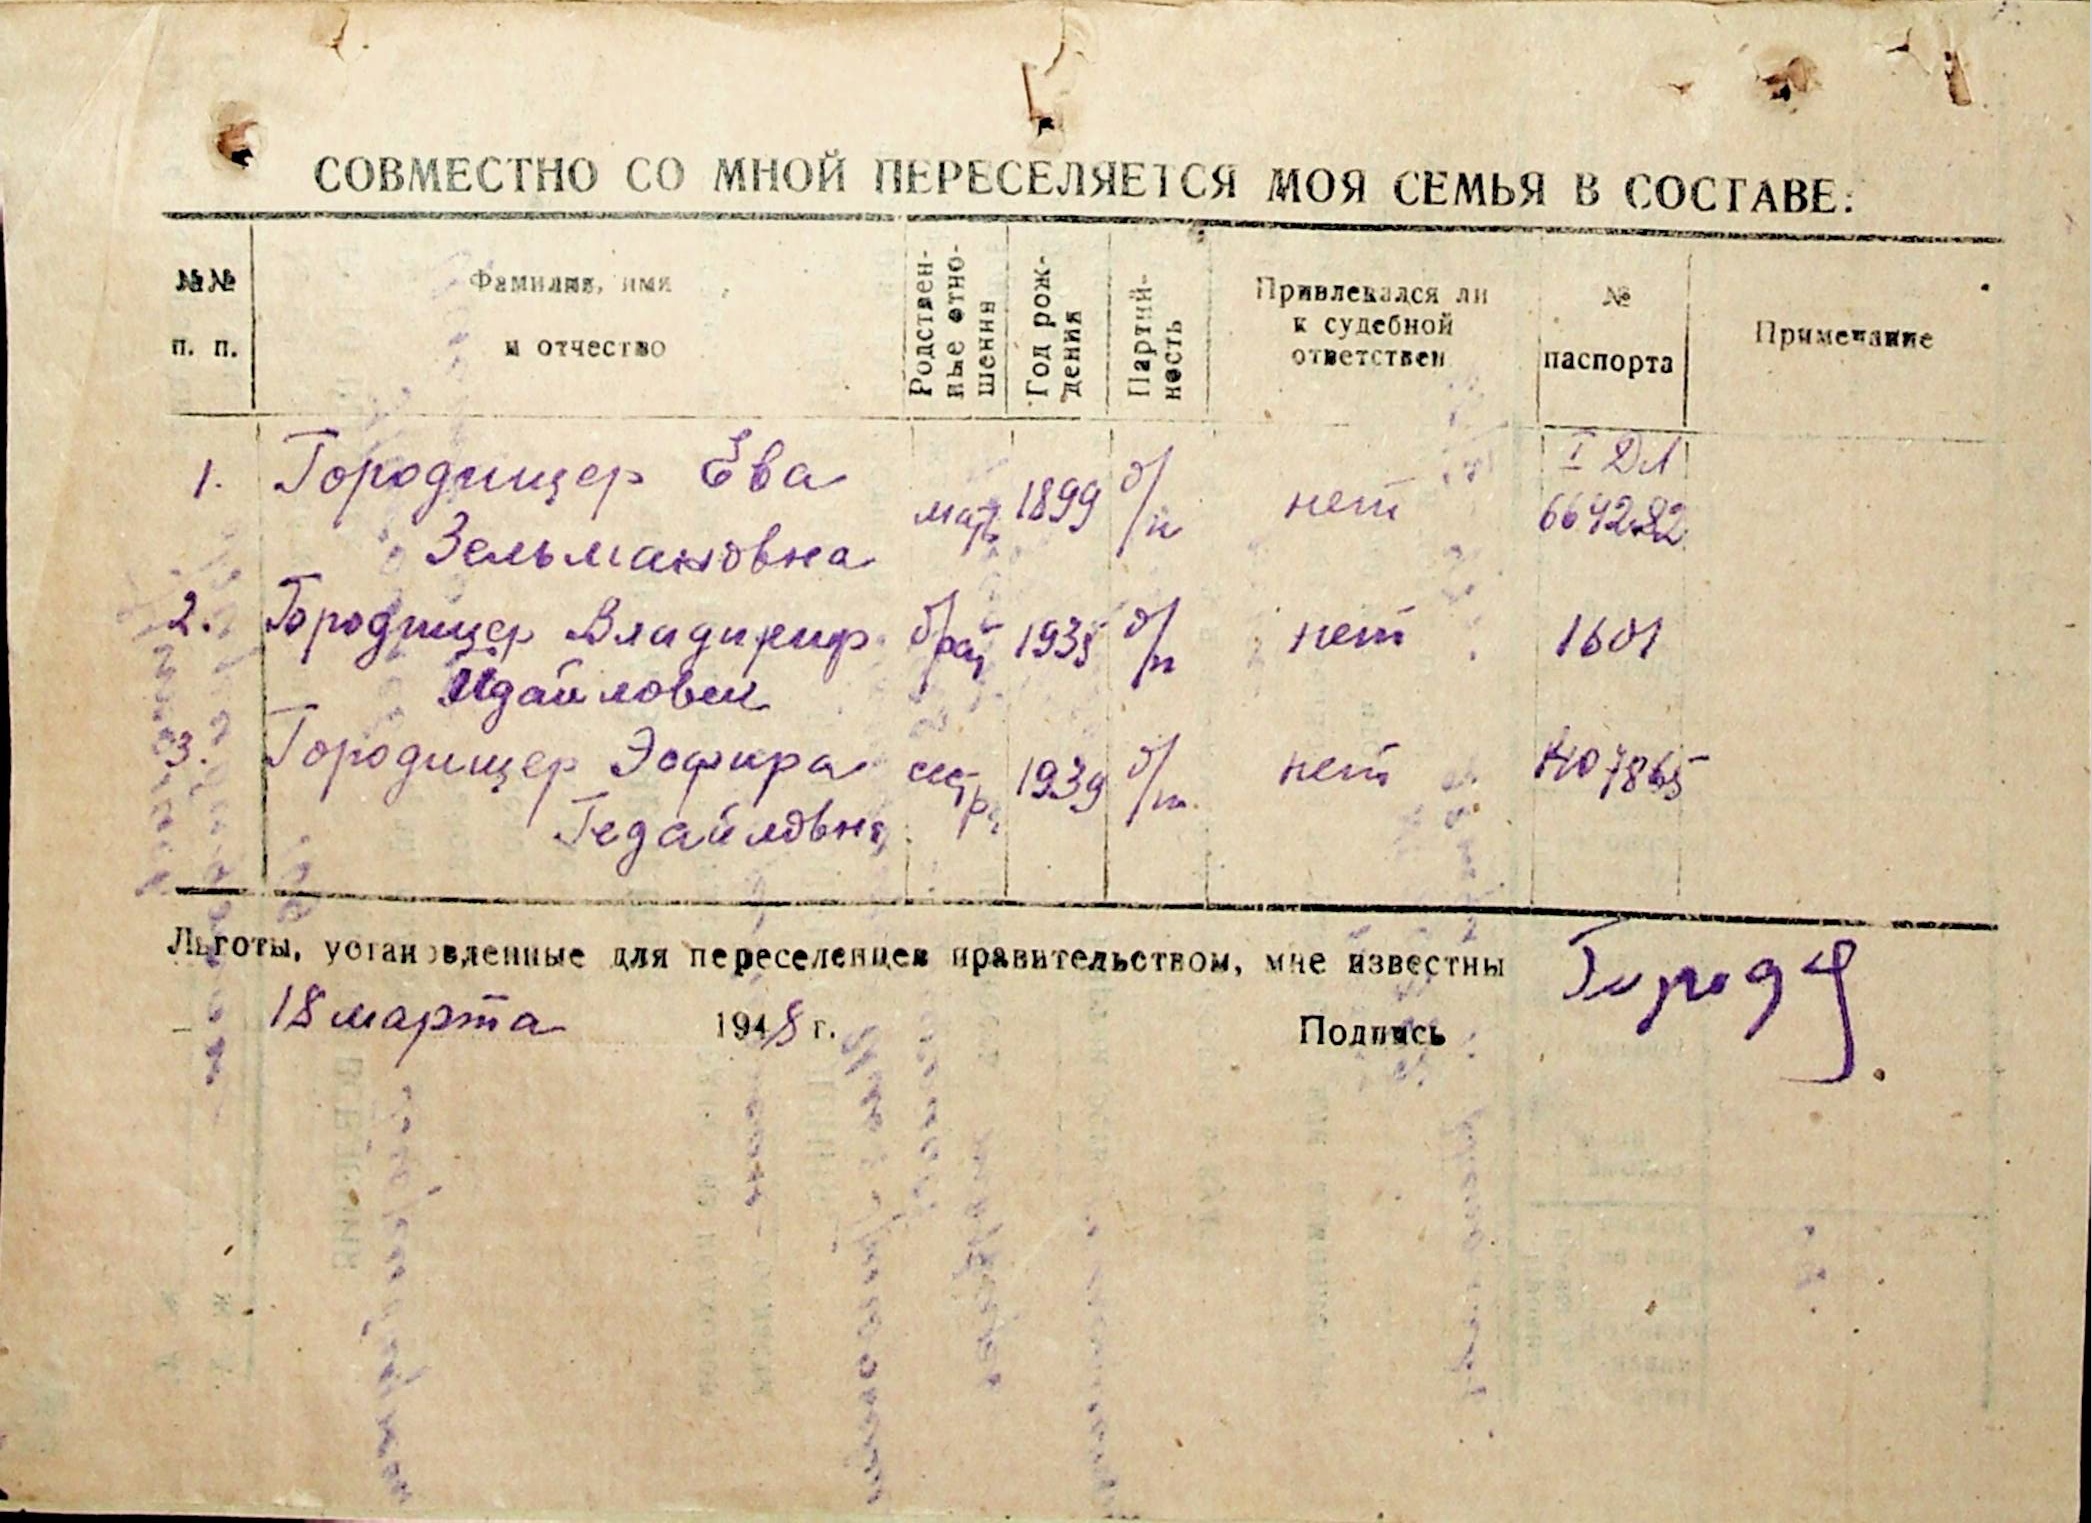 СОВМЕСТНО СО МНОЙ ПЕРЕСЕЛЯЕТСЯ МОЯ СЕМЬЯ В СОСТАВЕ:
№№ п. п.
Фамилия, имя и отчество
Родственные отношения
Год рождения
Партийность
Привлекался ли к судебной ответствен
№ паспорта
Примечание
1. Городищер Ева Зельмановна мать 1899 б/п нет I ДЛ 664282
2. Городищер Владимир брат 1935 б/п нет 1601
3. Городищер Эсфира Гедайловна сестра 1939 б/п нет 407865
Льготы, установленные для переселенцев правительством, мне известны
18 марта 1948 г. Подпись